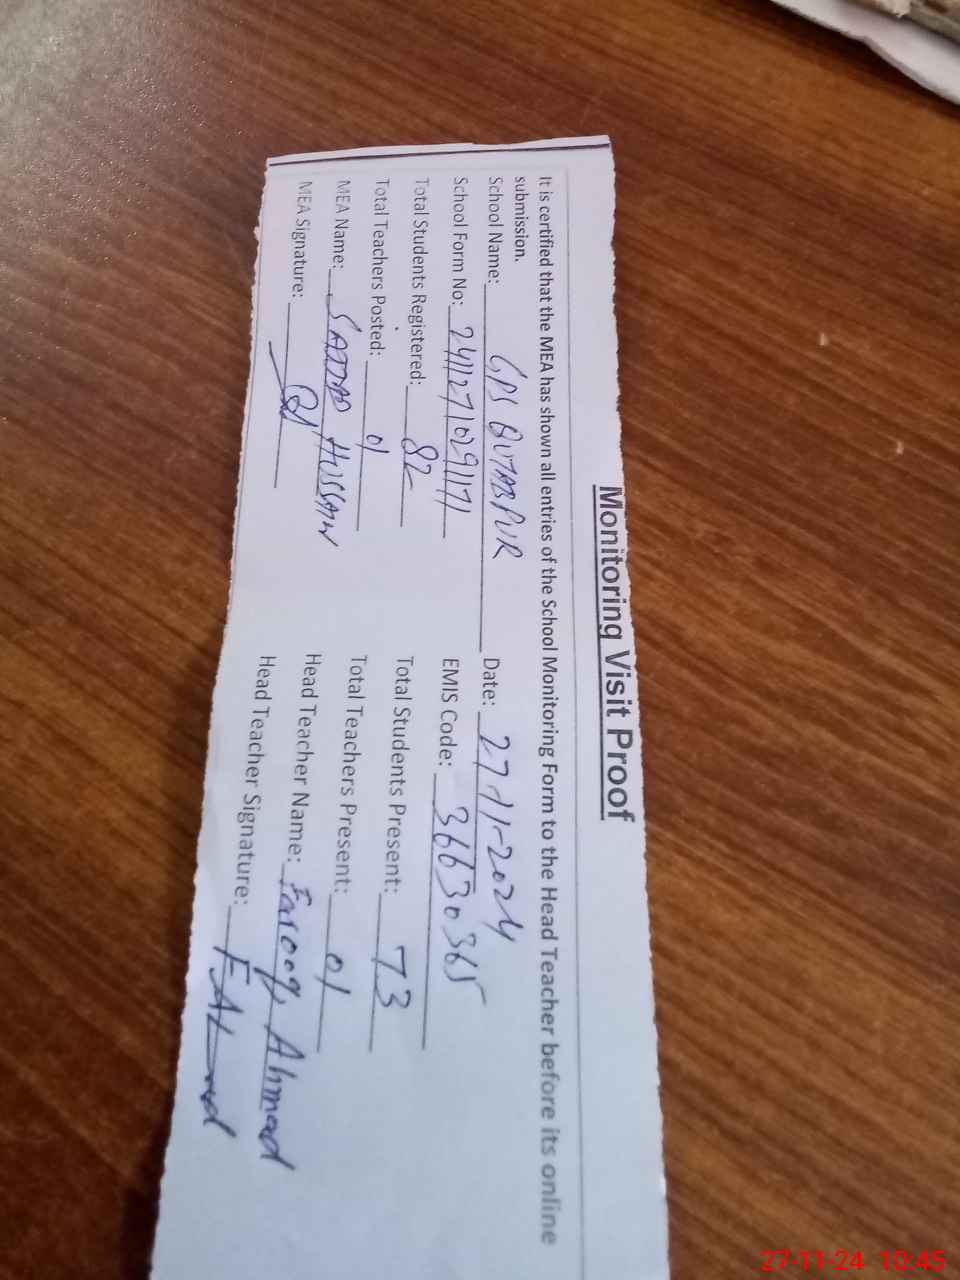 Monitoring Visit Proof
It is certified that the MEA has shown all entries of the School Monitoring Form to the Head Teacher before its online
submission.
School Name: GPS QUTABPUR Date: 27-11-2024
School Form No: 24112710291171 EMIS Code: 36630365
Total Students Registered: 82 Total Students Present: 73
Total Teachers Posted: 01 Total Teachers Present: 01
MEA Name: SAJJAD HUSSAIN Head Teacher Name: Farooq Ahmad
MEA Signature: Head Teacher Signature: F.Ahmad
27-11-24 10:45